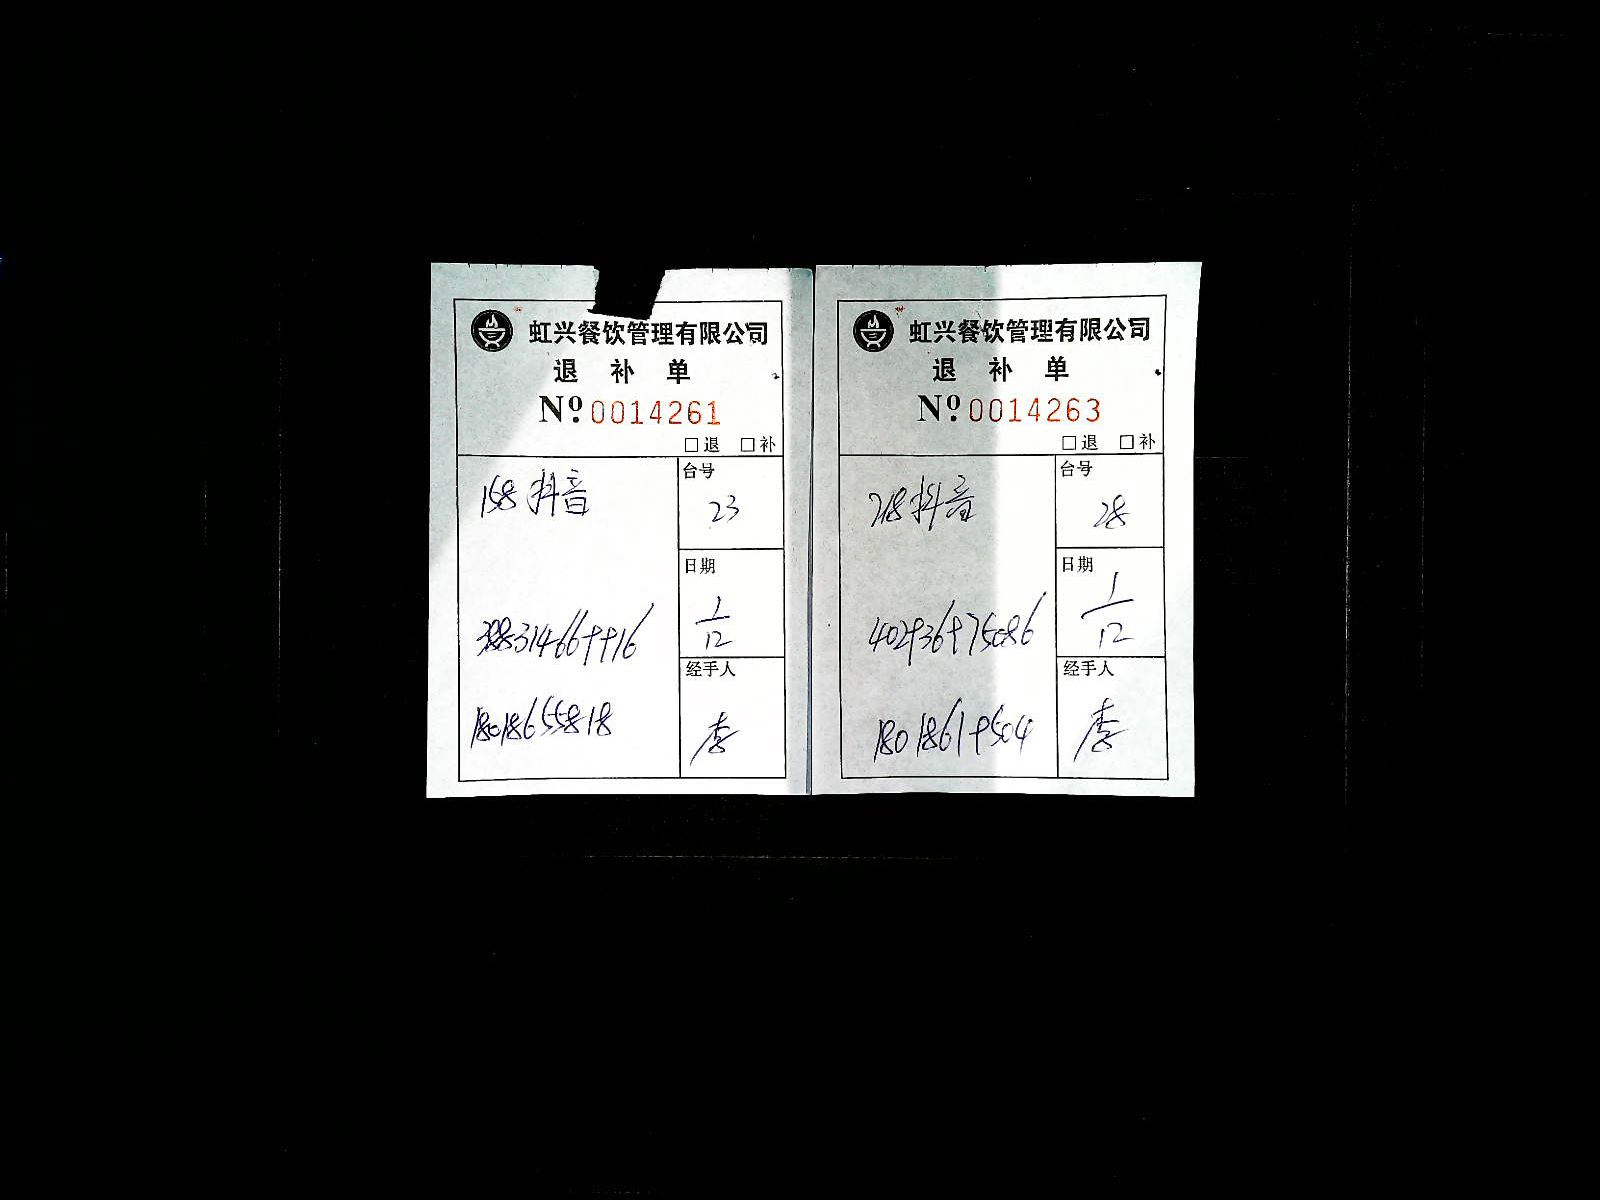 虹兴餐饮管理有限公司
退 补 单
Nº 0014261
□退 □补
158 抖音
台号
23
日期
1/12
经手人
李
18018655818
虹兴餐饮管理有限公司
退 补 单
Nº 0014263
□退 □补
218 抖音
台号
28
日期
1/12
经手人
李